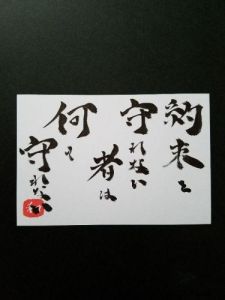 約束を
守れない
者は
何も
守れない